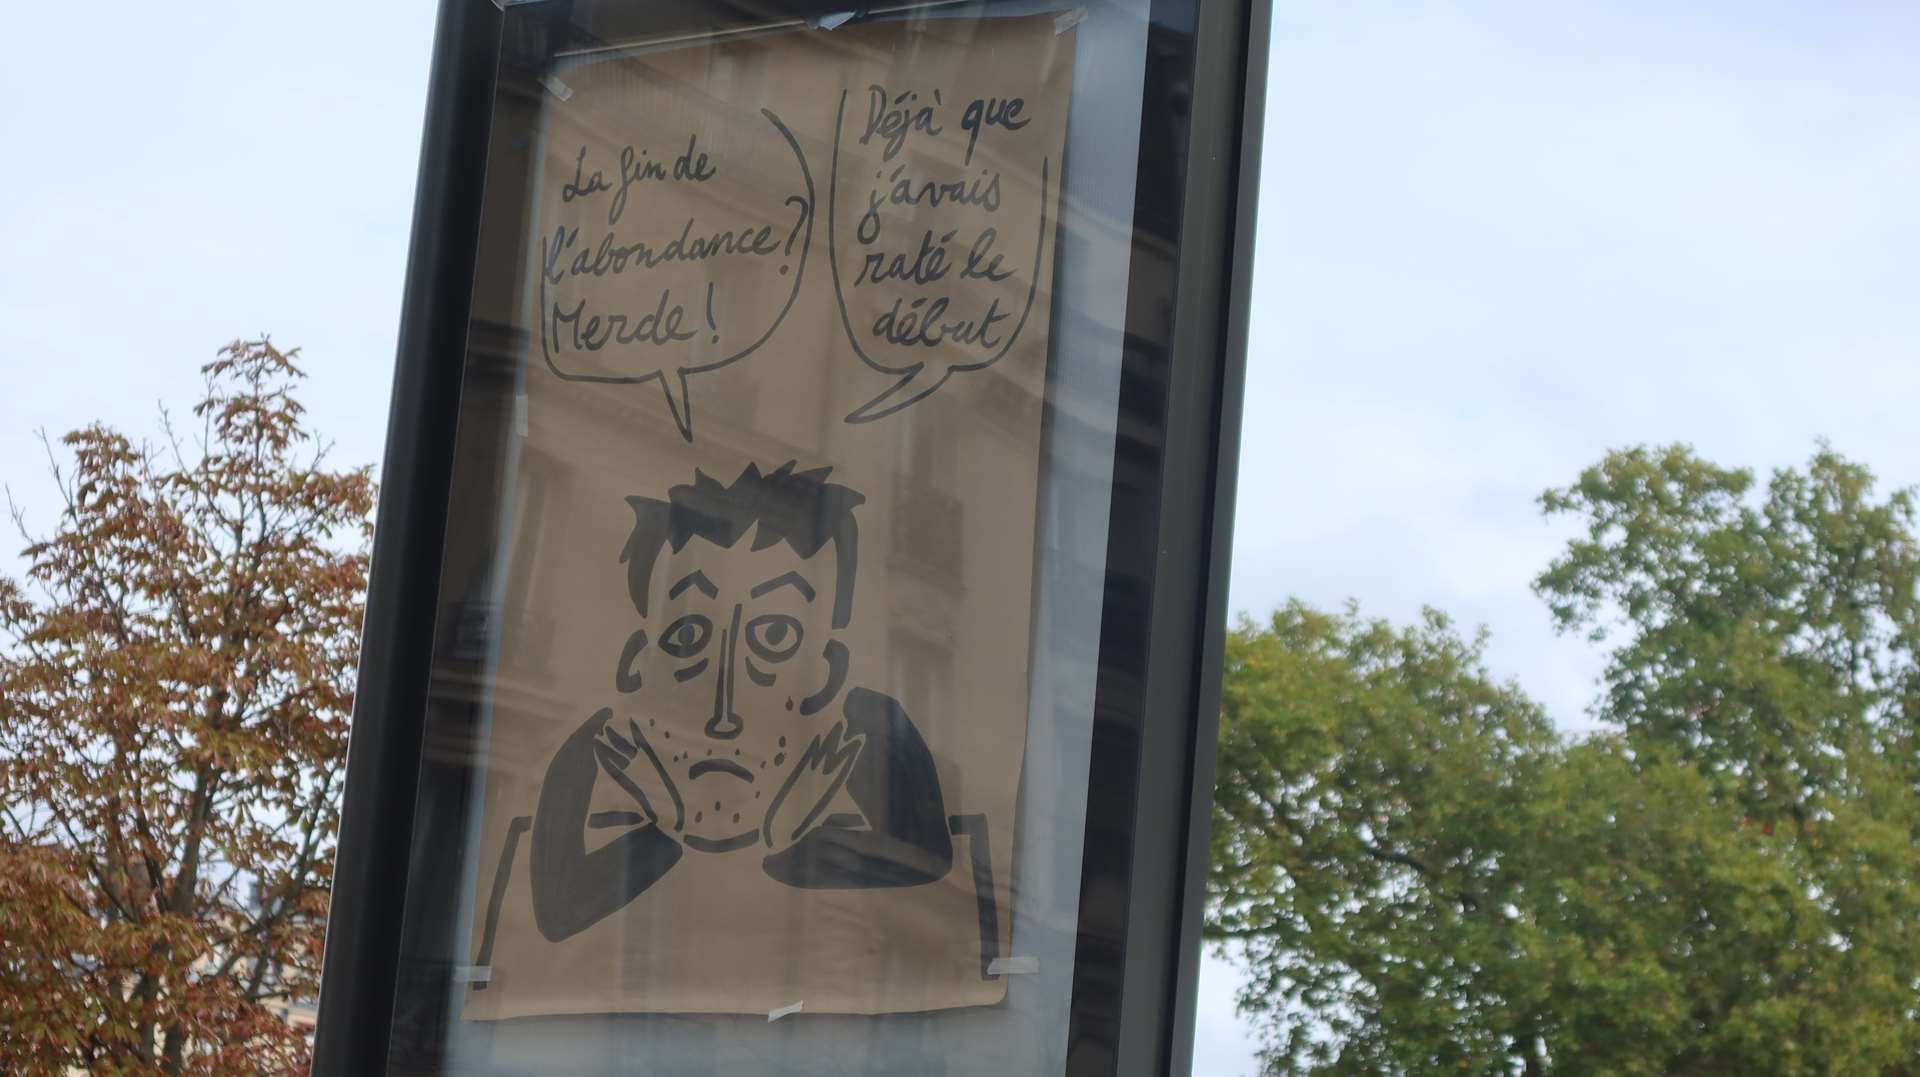 La fin de
l'abondance?
Merde!
Déjà que
j'avais
raté le
début